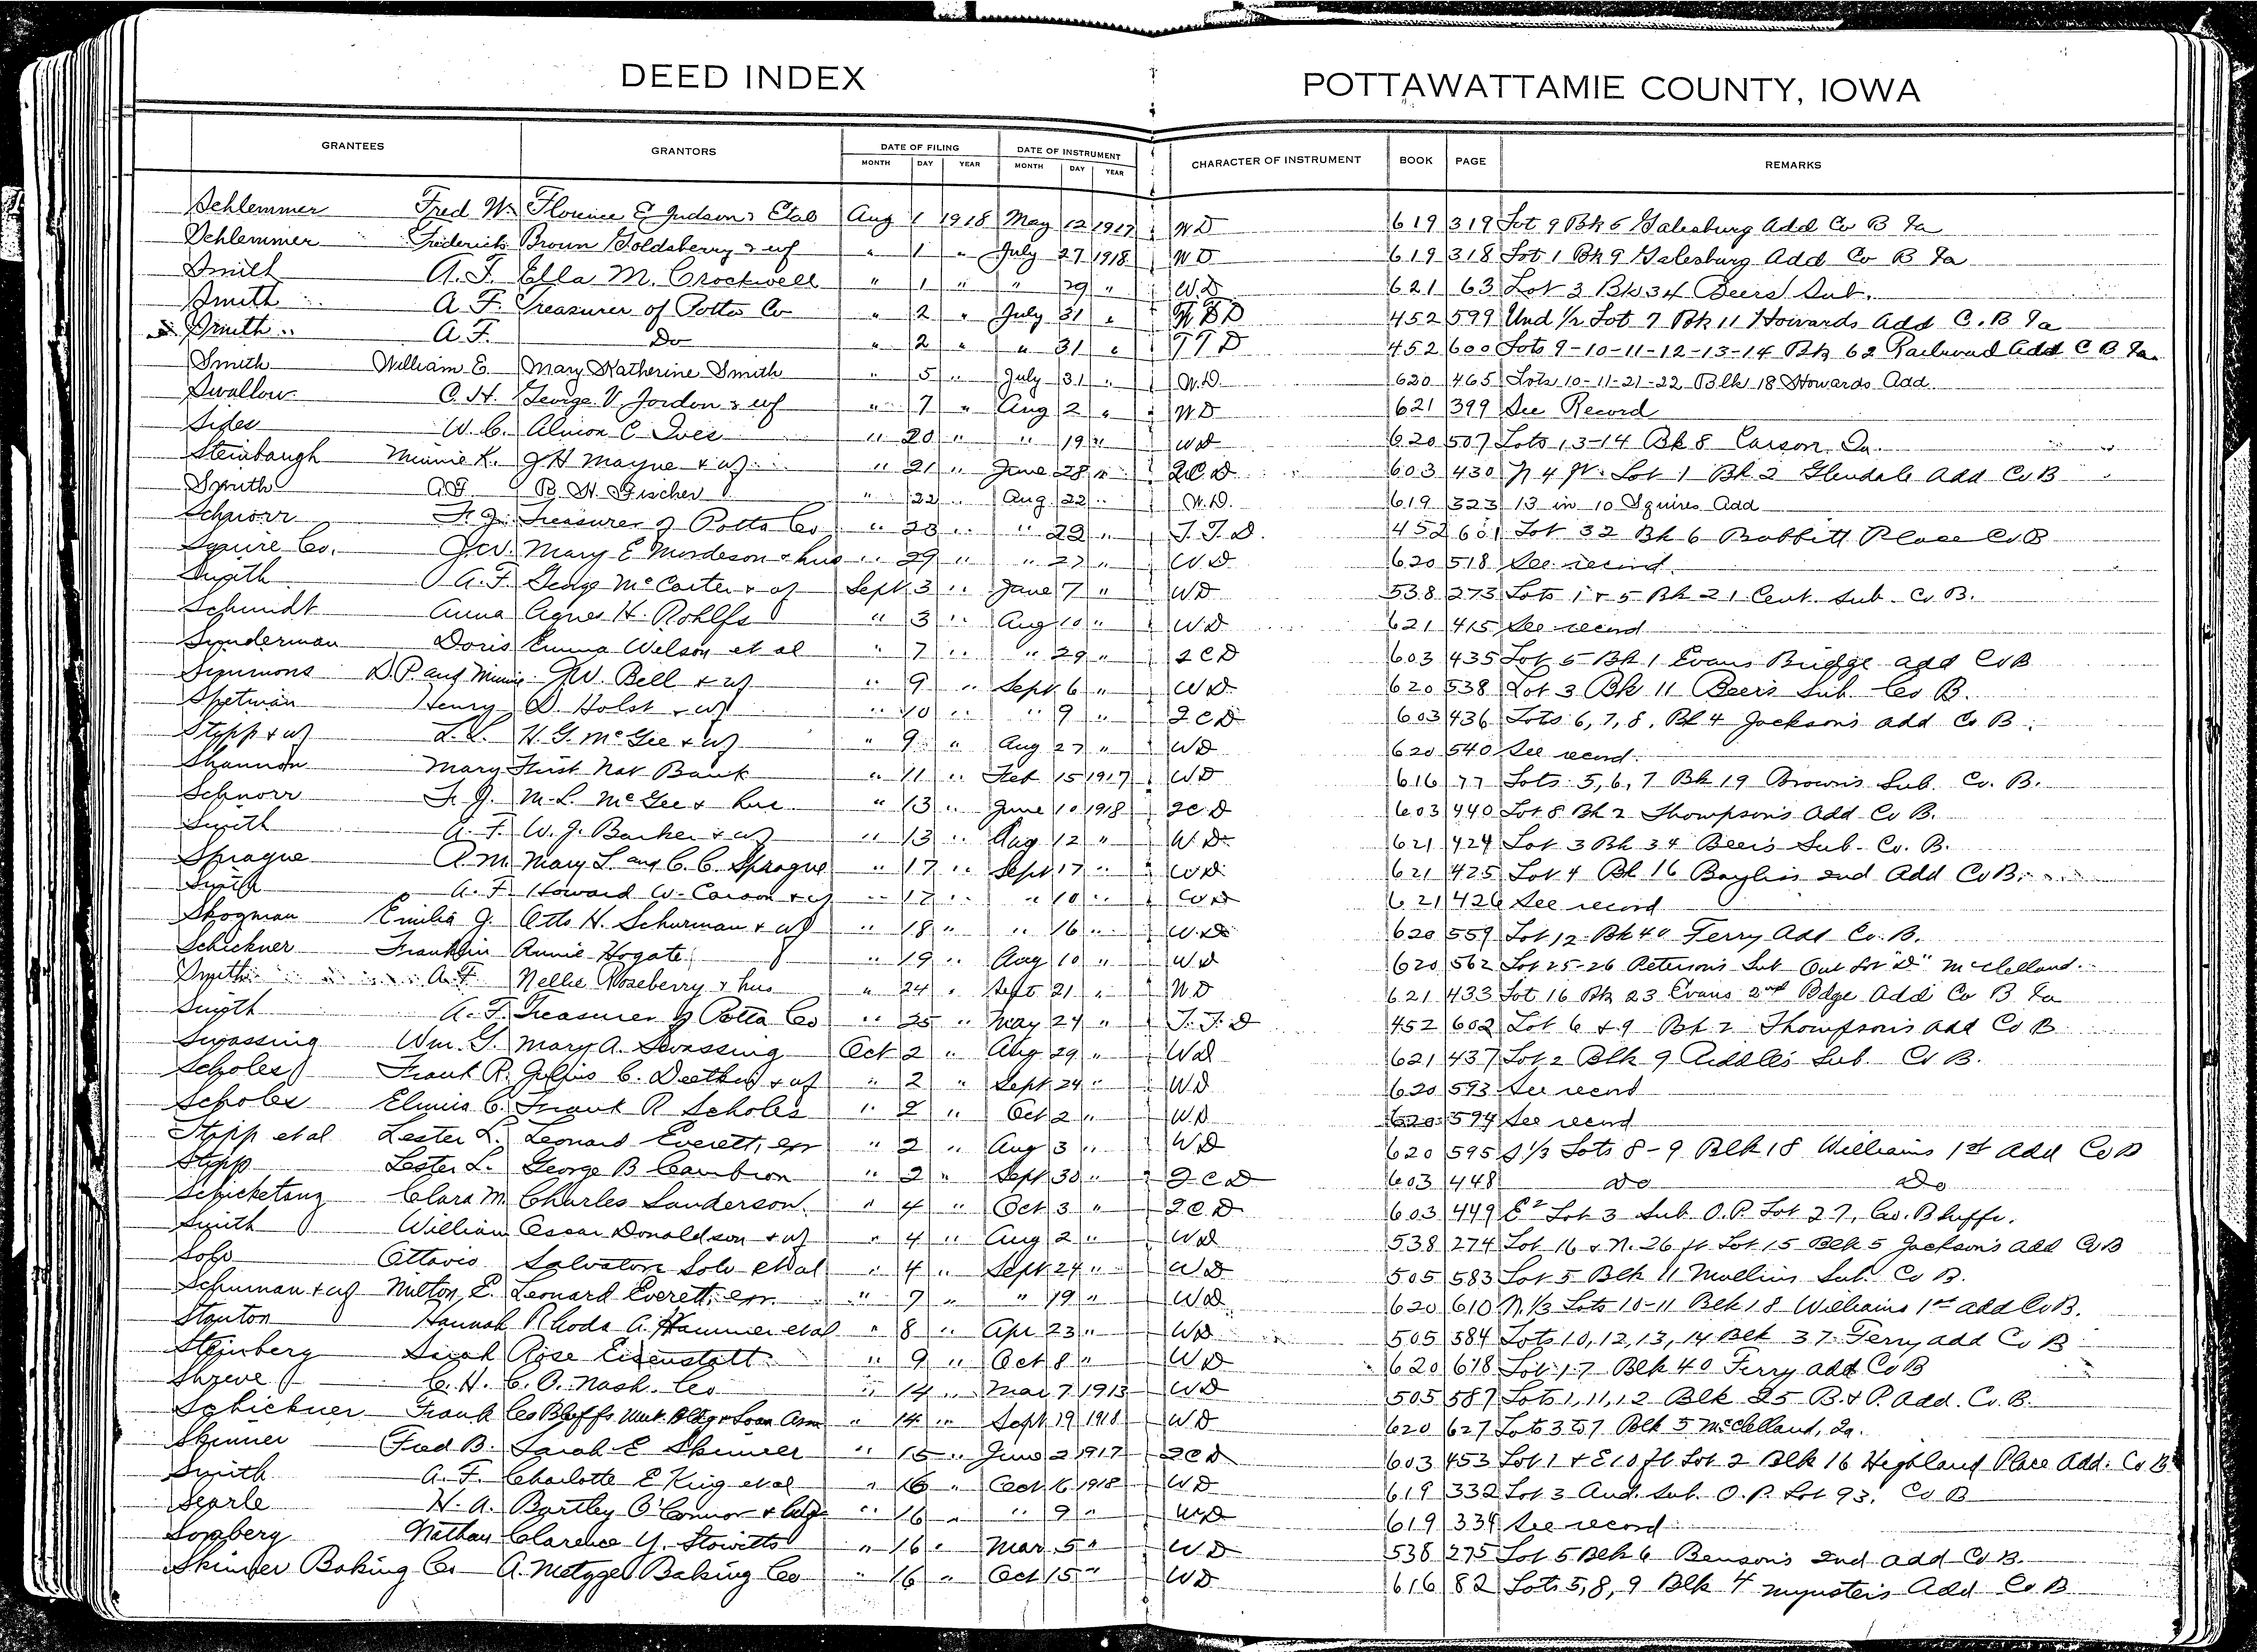 DEED INDEX POTTAWATTAMIE COUNTY, IOWA
GRANTEES GRANTORS DATE OF FILING DATE OF INSTRUMENT CHARACTER OF INSTRUMENT BOOK PAGE REMARKS
MONTH DAY YEAR MONTH DAY YEAR
Schlemmer Fred W. Florence E Judson & Etal Aug 1 1918 May 12 1917 WD 619 319 Lot 9 Bk 5 Galesburg Add Co B Ia
Schlemmer Frederick Brown Goldsberry & wf " 1 " July 27 1918 WD 619 318 Lot 1 Bk 9 Galesburg Add Co B Ia
Smith A. F. Ella M. Crockwell " 1 " " 29 " W.D 621 63 Lot 3 Bk 34 Beers Sub.
Smith A F. Treasurer of Potta Co " 2 " July 31 " 452 599 Und 1/2 Lot 7 Bk 11 Howards Add C. B Ia
Smith A F. Do " 2 " " 31 " T T D 452 600 Lots 9-10-11-12-13-14 Bk 62 Railroad Add C B Ia
Smith William E. Mary Katherine Smith " 5 " July 31 " W.D. 620 465 Lots 10-11-21-22 Blk 18 Howards Add.
Swallow C. H. George V. Jordon & wf " 7 " Aug 2 " WD 621 399 See Record
Sides W. C. Almon C Ives " 20 " " 19 " WD 620 507 Lots 13-14 Bk 8 Carson Ia.
Steinbaugh Minnie K. J H Mayne + wf " 21 " June 28 " QCD 603 430 N 4 ft. Lot 1 Bk 2 Glendale Add Co B
Smith A F B. H. Fischer " 22 " Aug. 22 " W.D. 619 323 13 in 10 Squires Add
Schnorr F. J. Treasurer of Potta Co " 28 " " 28 " T.T.D. 452 601 Lot 32 Bk 6 Babbitt Place Co B
Squire Co. J.W. Mary E + hus " 29 " " 27 " WD 620 518 See record
Smith A. F. George McCarter + wf Sept 3 " June 7 " WD 538 273 Lots 1 + 5 Bk 21 Cent. Sub. Co B.
Schmidt Anna Agnes H. Rohlfs " 3 " Aug 10 " WD 621 415 See record
Sunderman Doris Emma Wilson et al " 7 " " 29 " QCD 603 435 Lot 5 Bk 1 Evans Bridge add Co B
Simmons D.P. and Minnie J.W. Bell + wf " 9 " Sept 6 " WD 620 538 Lot 3 Bk 11 Beers Sub. Co B.
Spetman Henry D. Holst + wf " 10 " " 9 " QCD 603 436 Lots 6, 7, 8. Bk 4 Jacksons add Co B.
Stipp + wf L. L. H. G. McGee + wf " 9 " Aug 27 " WD 620 540 See record
Shannon Mary First Nat Bank " 11 " Feb 15 1917 WD 616 77 Lots 5, 6, 7 Bk 19 Browns Sub. Co. B.
Schnorr F. J. M. L. McGee + hus. " 13 " June 10 1918 QCD 603 440 Lot 8 Bk 2 Thompson's Add Co B.
Smith A. F. W. J. Barker + wf " 13 " Aug 12 " W.D. 621 424 Lot 3 Bk 34 Beers Sub. Co. B.
Sprague A. M. Mary L. and C. C. Sprague " 17 " Sept 17 " WD. 621 425 Lot 4 Bk 16 Bayliss 2nd Add Co B.
Smith A. F. Howard W. Carson + wf " 17 " " 10 " WD 621 426 See record
Skogman Emilia J. Otto H. Schurman + wf " 18 " " 16 " W.D. 620 559 Lot 12 Bk 40 Ferry Add Co. B.
Schickner Franklin Annie Hogate " 19 " Aug 10 " WD 620 562 Lot 25-26 Peterson's Sub Out Lot "D" McClelland.
Smith A. F. Nellie Roseberry & hus " 24 " Sept 21 " WD 621 433 Lot 16 Bk 23 Evans 2nd Bdge Add Co B Ia
Smith A. F. Treasurer of Potta Co " 25 " May 24 " T.T.D 452 602 Lot 6 & 9 Bk 2 Thompson's add Co B
Swassing Wm. G. Mary A. Swassing Oct 2 " Aug 29 " WD 621 437 Lot 2 Blk 9 Riddles Sub. Co B.
Scholes Frank R. Julius C. Deetken + wf " 2 " Sept 24 " WD 620 593 See record
Scholes Elmira C. Frank R Scholes " 2 " Oct 2 " W.D 620 594 See record
Stipp et al Lester L. Leonard Everett, exr " 2 " Aug 3 " WD 620 595 S 1/3 Lots 8-9 Blk 18 Williams 1st Add Co B
Stipp Lester L. George B Cambron " 2 " Sept 30 " QCD 603 448 Do Do
Schicketanz Clara M. Charles Sanderson. " 4 " Oct 3 " QCD 603 449 E 2 Lot 3 Sub O.P. Lot 27, Co. Bluffs.
Smith William Oscar Donaldson + wf " 4 " Aug 2 " WD 538 274 Lot 16 + N. 26 ft Lot 15 Blk 5 Jackson's add Co B
Solo Ottavio Salvatore Solo et al " 4 " Sept 24 " WD 505 583 Lot 5 Blk 11 Mullins Sub. Co B.
Schuman + wf Milton E. Leonard Everett, exr. " 7 " " 19 " WD 620 610 N. 1/3 Lots 10-11 Blk 18 Williams 1st add Co B.
Stanton Hannah Rhoda A. Hammer et al " 8 " Apr 23 " WD 505 584 Lots 10, 12, 13, 14 Blk 37 Ferry add Co B
Steinberg Sarah Rose Eisenstatt " 9 " Oct 8 " WD 620 618 Lot 17 Blk 40 Ferry add Co B
Shreve C. H. C. O. Nash Co " 14 " Mar 7 1913 WD 505 587 Lots 1, 11, 12 Blk 25 B. & P. Add. Co. B.
Schickner Frank Co Bluffs Mut. Bldg + Loan Assn " 14 " Sept 19 1918 WD 620 627 Lots 3 to 7 Blk 5 McClelland, Ia.
Skinner Fred B. Sarah E Skinner " 15 " June 2 1917 QCD 603 453 Lot 1 & E 10 ft Lot 2 Blk 16 Highland Place Add. Co B
Smith A. F. Charlotte E King et al " 16 " Oct 16 1918 WD 619 332 Lot 3 Aud. Sub. O. P. Lot 93. Co B
Searle H. A. Bartley O'Connor & " 16 " " 9 " WD 619 334 See record
Nathan Clarence Y. Stowitts " 16 " Mar. 5 " WD 538 275 Lot 5 Blk 6 Benson's 2nd add Co B.
Skinner Baking Co A. Metzger Baking Co " 16 " Oct 15 " WD 616 82 Lots 5, 8, 9 Blk 4 Mynster's Add Co B